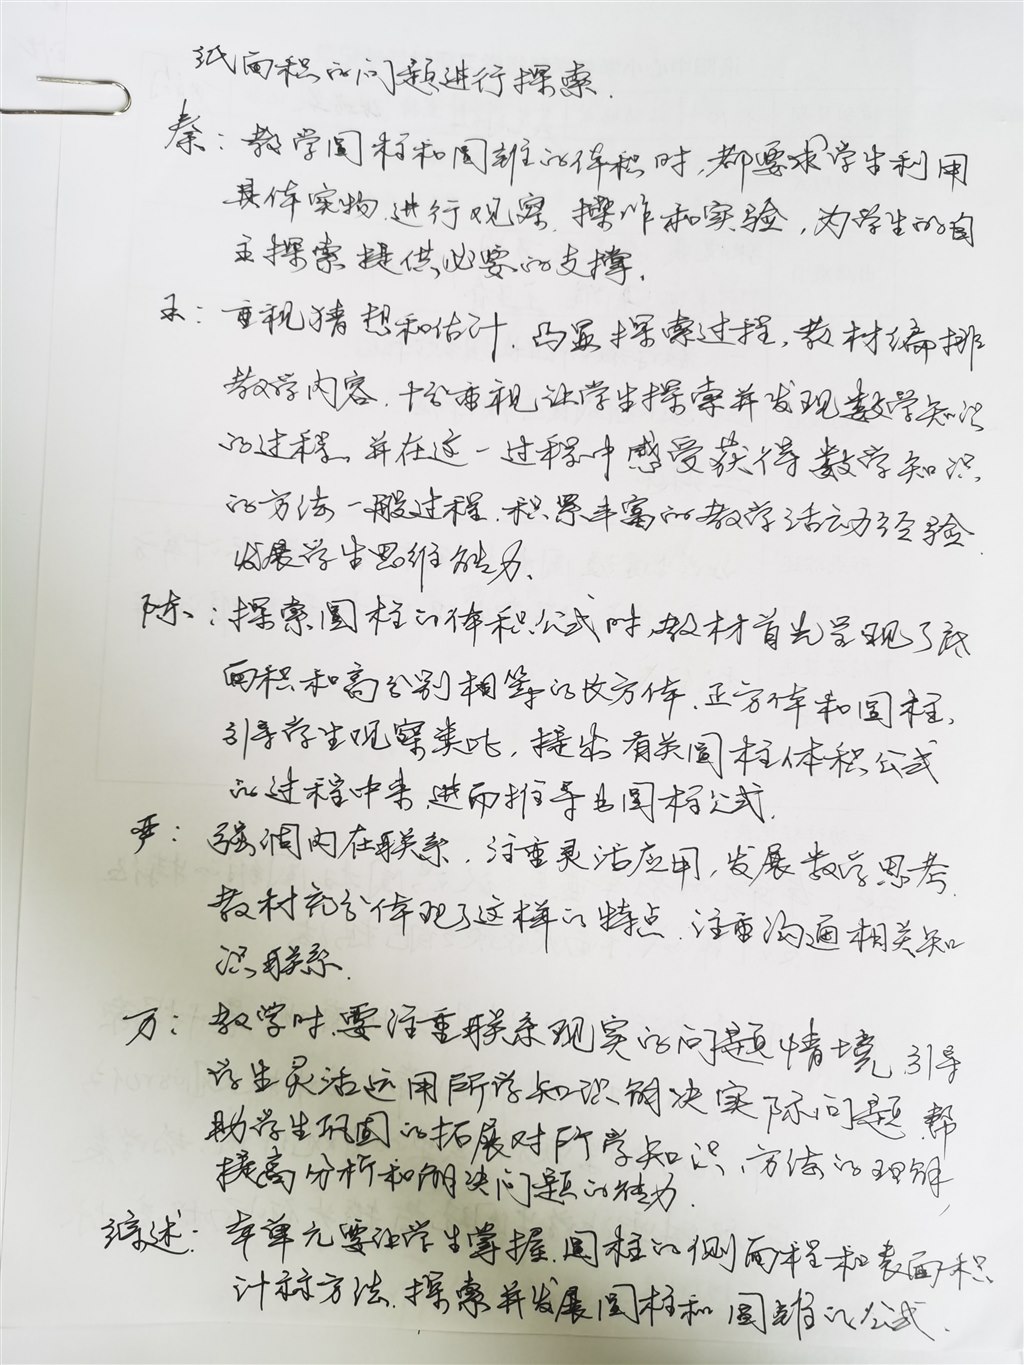 纸面积的问题进行探索.
秦：教学圆柱和圆锥的体积时,都要求学生利用
具体实物,进行观察,操作和实验,为学生的自
主探索提供必要的支撑.
王：重视猜想和估计,凸显探索过程,教材编排
教学内容,十分重视让学生探索并发现数学知识
的过程,并在这一过程中感受获得数学知识
的方法一般过程,积累丰富的教学活动经验
发展学生思维能力、
陈：探索圆柱的体积公式时,教材首先呈现了底
面积和高分别相等的长方体、正方体和圆柱,
引导学生观察类比,提出有关圆柱体积公式
的过程中来,进而推导出圆柱公式.
严：强调内在联系,注重灵活应用,发展数学思考
教材充分体现了这样的特点,注重沟通相关知
识联系.
万：教学时,要注重联系现实的问题情境,引导
学生灵活运用所学知识解决实际问题,帮
助学生巩固的拓展对所学知识、方法的理解,
提高分析和解决问题的能力.
综述：本单元要让学生掌握,圆柱的侧面积和表面积
计算方法,探索并发展圆柱和圆锥的公式.